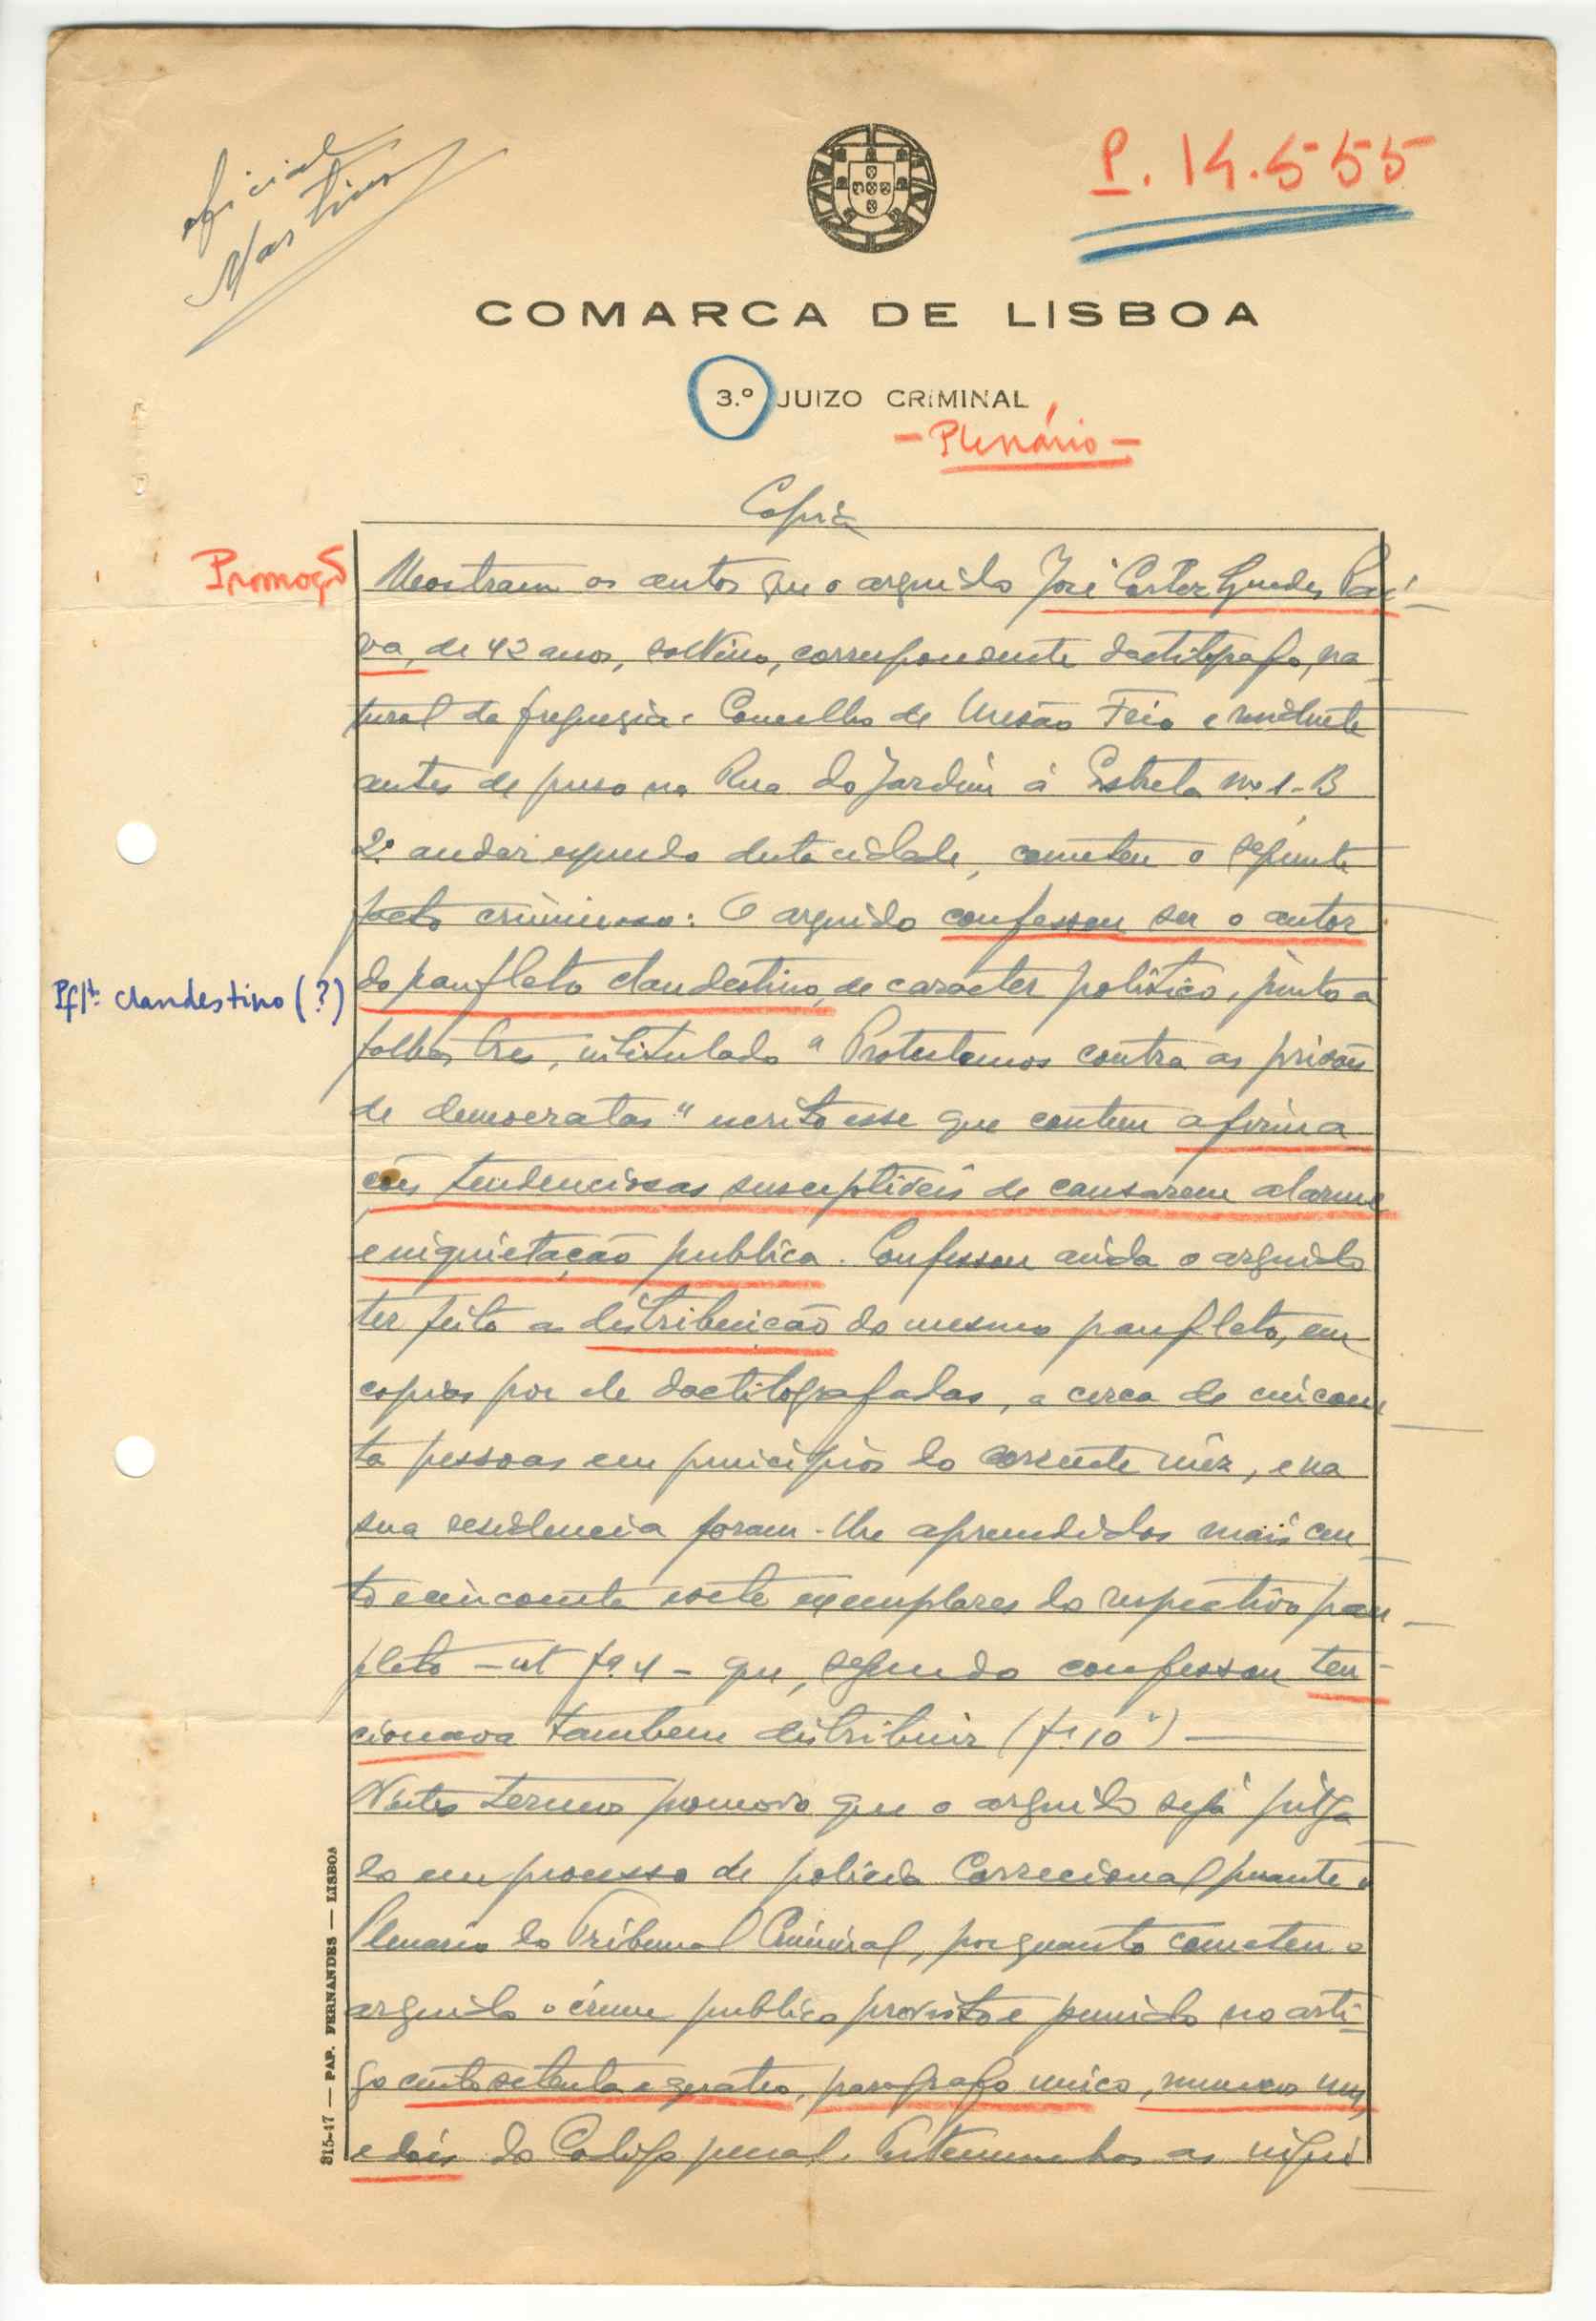 oficial
Martins
P. 14.555
COMARCA DE LISBOA
3.º JUIZO CRIMINAL
- Plenário -
Copia
Promoçº
Mostram os autos que o arguido José Guedes Pai-
va, de 42 anos, solteiro, correspondente dactilografo, na-
tural da freguesia e Concelho de Mesão Frio e residente
antes de preso na Rua do Jardim á Estrela nº 1-B
2º andar esquerdo desta cidade, cometeu o seguinte
facto criminoso: O arguido confessou ser o autor
Pflt. clandestino (?)
do panfleto clandestino, de caracter politico, junto a
folhas três, intitulado "Protestemos contra as prisões
de democratas" escrito esse que contem afirma-
ções tendenciosas susceptiveis de causarem alarme
e inquietação publica. Confessou ainda o arguido
ter feito a distribuição do mesmo panfleto, em
copias por ele dactilografadas, a cerca de cincoen-
ta pessoas em principios do corrente mêz, e na
sua residencia foram-lhe apreendidos mais cen-
to e cincoenta e sete exemplares do respectivo pan-
fleto - ut fª. 4 - que, segundo confessou ten-
cionava tambem distribuir (fª 10")
Nestes termos promovo que o arguido seja julga-
do em processo de policia Correcional perante o
Plenario do Tribunal Criminal, porquanto cometeu o
arguido o crime publico previsto e punido no arti-
go cento setenta e quatro, paragrafo unico, numeros um
e dois do Codigo penal. Testemunhas as
315-47 — PAP. FERNANDES — LISBOA